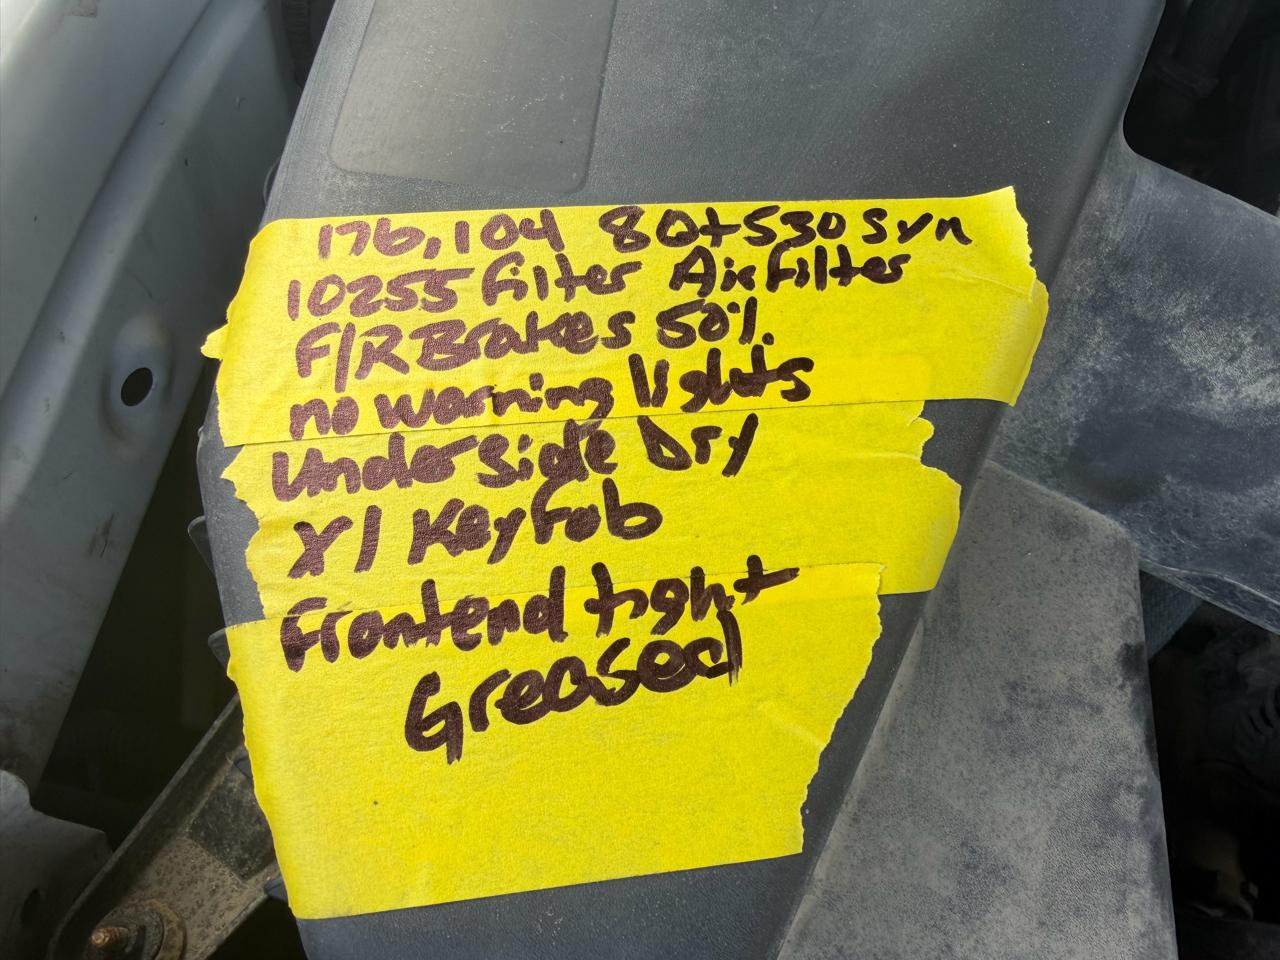 176,104 8Qt 530 Syn
10255 filter Air filter
F/R Brakes 50%.
no warning lights
Underside Dry
X1 Keyfob
Frontend tight
Greased